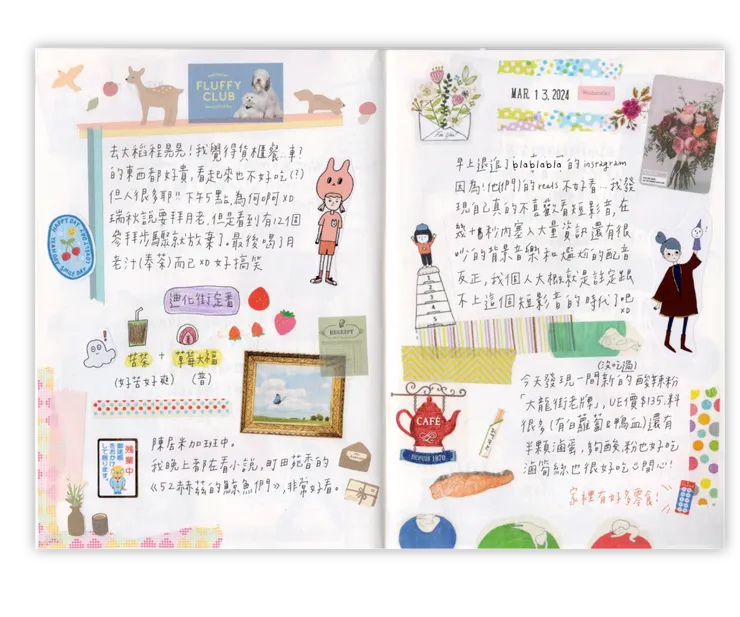 FLUFFY
CLUB
去大稻埕晃晃!我覺得貨櫃餐車
的東西都好貴,看起來也不好吃(?)
但人很多耶!!下午5點,為何啊XD
瑞秋說要拜月老,但是看到有12個
參拜步驟就放棄了。最後喝了月
老汁(奉茶)而已XD好搞笑
迪化街定番
苦茶 + 草莓大福
(好苦好爽) (普)
RECEIPT
残業中
郵迷惑
をおかけ
して居ります。
陳居米加班中。
我晚上都在看小說,町田苑香的
《52赫茲的鯨魚們》,非常好看。
MAR. 13, 2024
Wednesday
早上退追了blablabla的instagram
因為!他(們)的reels不好看…我發
現自己真的不喜歡看短影音,在
幾十秒內塞入大量資訊還有很
吵的背景音樂和尷尬的配音
反正,我個人大概就是註定跟
不上這個短影音的時代了吧
XD
(沒吃過)
今天發現一間新的酸辣粉
「大龍街老牌」,UE價$135.料
很多(有白蘿蔔&鴨血)還有
半顆滷蛋,夠酸,粉也好吃
滷筍絲也很好吃☺開心!
CAFÉ
DEPUIS 1870
家裡有好多零食!